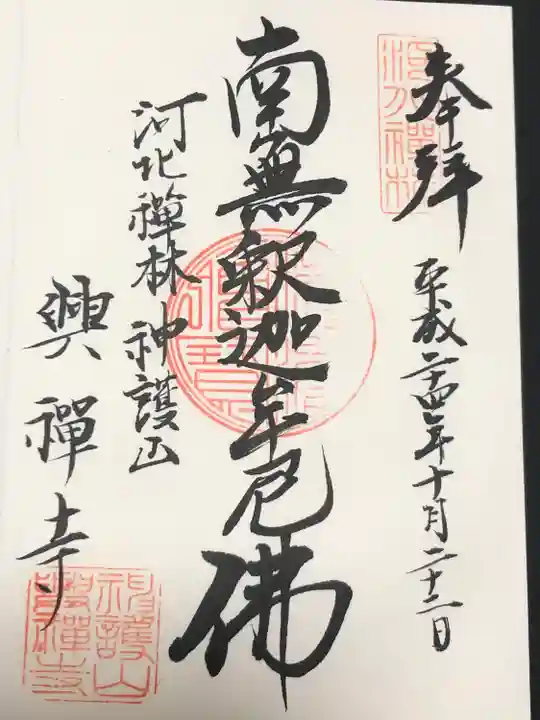 奉拝
平成二十四年十月二十二日
南無釈迦牟尼佛
河北禅林 神護山
興禅寺
河北禅林
神護山
興禅寺